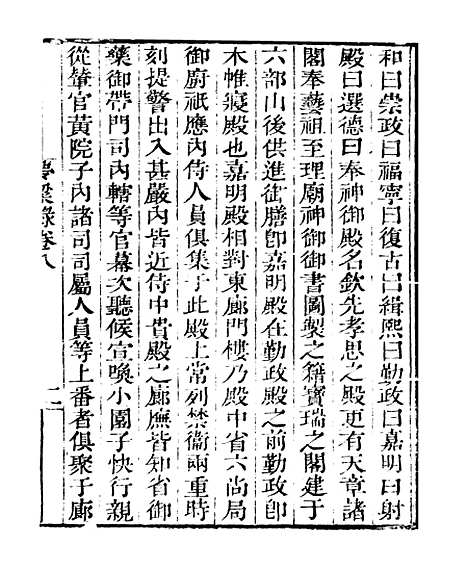 和曰崇政曰福寧曰復古曰緝熙曰勤政曰嘉明曰射
殿曰選德曰奉神御殿名欽先孝思之殿更有天章諸
閣奉藝祖至理廟神御御書圖製之籍寶瑞之閣建于
六部山後供進御膳卽嘉明殿在勤政殿之前勤政卽
木帷寢殿也嘉明殿相對東廊門樓乃殿中省六尚局
御廚祇應內侍人員俱集于此殿上常列禁衞兩重時
刻提警出入甚嚴內皆近侍中貴殿之廊廡皆知省御
藥御帶門司內轄等官幕次聽候宣喚小園子快行親
從輦官黃院子內諸司司屬人員等上番者俱聚于廊
夢粱錄卷八
二